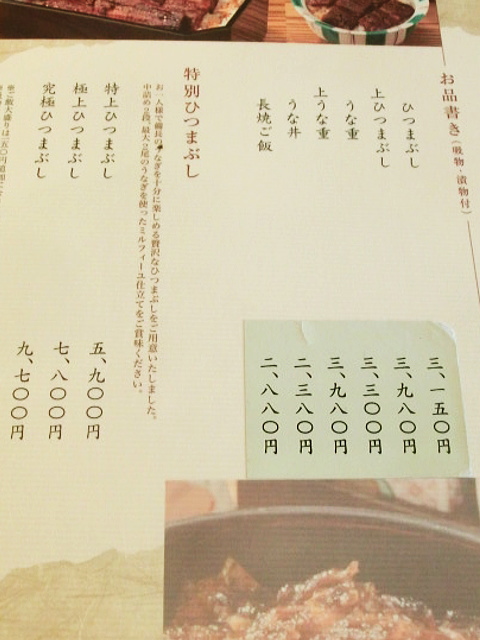 お品書き（吸物・漬物付）
ひつまぶし　三、一五〇円
上ひつまぶし　三、九八〇円
うな重　三、三〇〇円
上うな重　三、九八〇円
うな丼　二、三八〇円
長焼ご飯　二、八八〇円
特別ひつまぶし
お一人様で備長のうなぎを十分に楽しめる贅沢なひつまぶしをご用意いたしました。
中詰め２段、最大２尾のうなぎを使ったミルフィーユ仕立てをご賞味ください。
特上ひつまぶし　五、九〇〇円
極上ひつまぶし　七、八〇〇円
究極ひつまぶし　九、七〇〇円